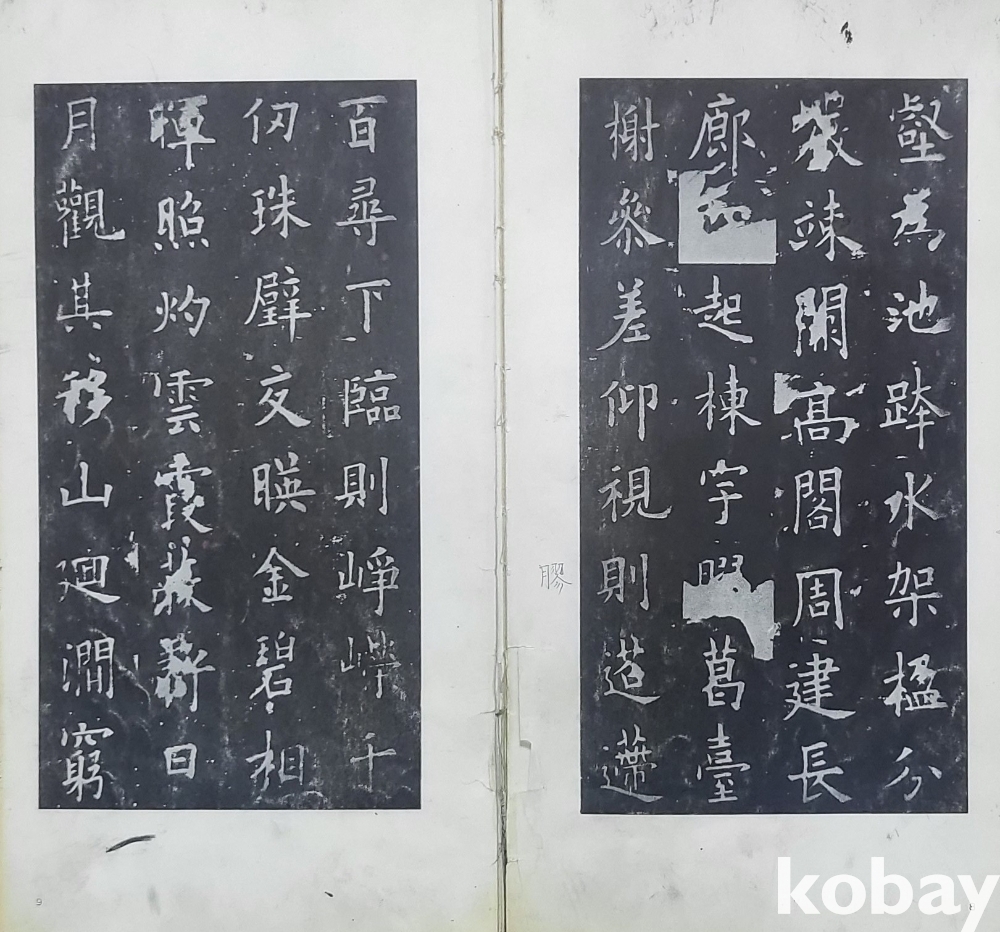 壑為池跨水架楹分
巖竦闕高閣周建長
廊四起棟宇膠葛臺
榭參差仰視則迢遰
膠
百尋下臨則崢嶸千
仞珠璧交暎金碧相
暉照灼雲霞蔽虧日
月觀其移山廻澗窮
9
8
kobay